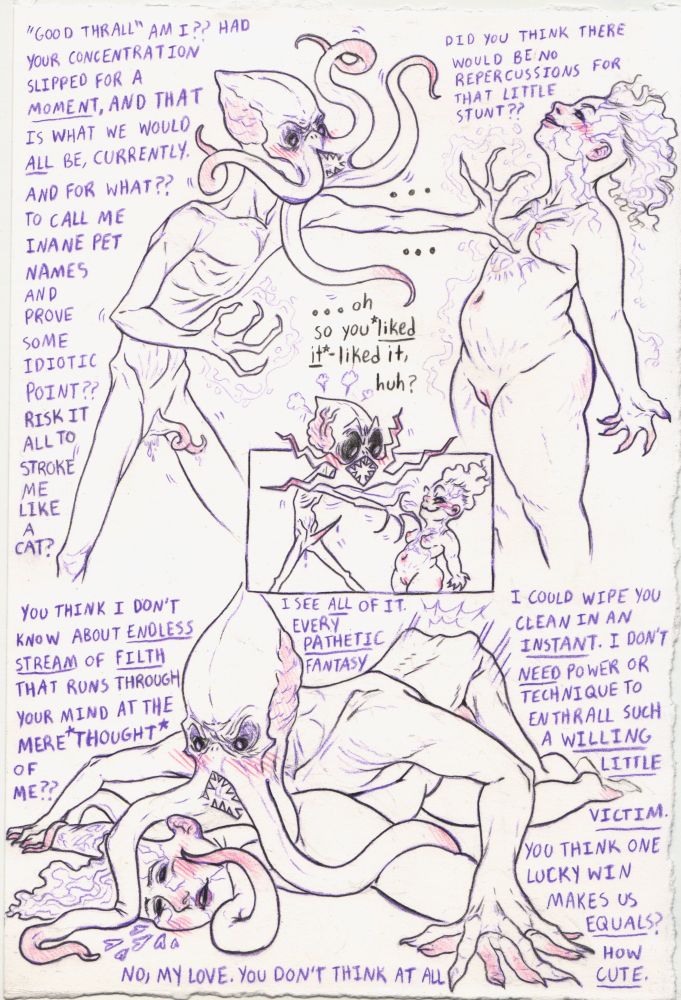 "GOOD THRALL" AM I?? HAD
YOUR CONCENTRATION
SLIPPED FOR A
MOMENT, AND THAT
IS WHAT WE WOULD
ALL BE, CURRENTLY.
AND FOR WHAT??
TO CALL ME
INANE PET
NAMES
AND
PROVE
SOME
IDIOTIC
POINT??
RISK IT
ALL TO
STROKE
ME
LIKE
A
CAT?
DID YOU THINK THERE
WOULD BE NO
REPERCUSSIONS FOR
THAT LITTLE
STUNT??
...
...
... oh
so you *liked
it*-liked it,
huh?
YOU THINK I DON'T
KNOW ABOUT ENDLESS
STREAM OF FILTH
THAT RUNS THROUGH
YOUR MIND AT THE
MERE *THOUGHT*
OF
ME??
I SEE ALL OF IT.
EVERY
PATHETIC
FANTASY
I COULD WIPE YOU
CLEAN IN AN
INSTANT. I DON'T
NEED POWER OR
TECHNIQUE TO
ENTHRALL SUCH
A WILLING
LITTLE
VICTIM.
YOU THINK ONE
LUCKY WIN
MAKES US
EQUALS?
HOW
CUTE.
NO, MY LOVE. YOU DON'T THINK AT ALL